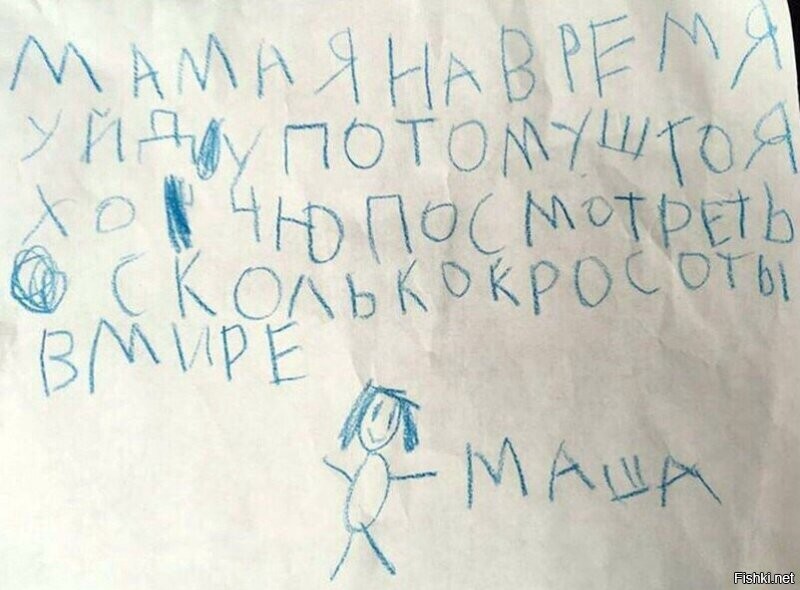 МАМА Я НА ВРЕМЯ
УЙДУ ПОТОМУ ШТО Я
ХОЧЮ ПОСМОТРЕТЬ
СКОЛЬКО КРОСОТЫ
В МИРЕ
МАША
Fishki.net